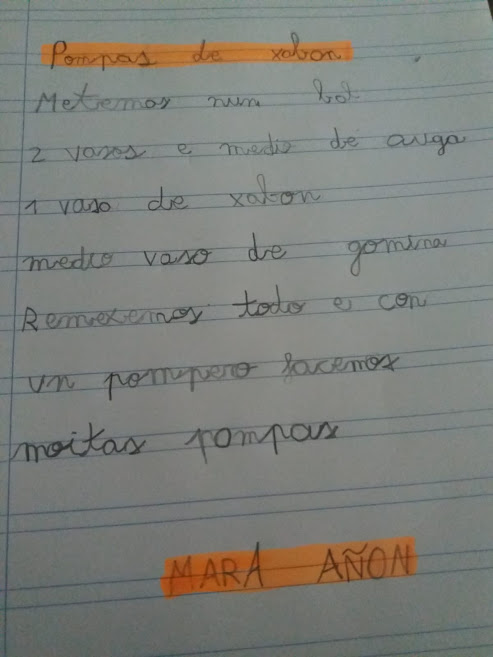 Pompas de xabon
Metemos nun bol
2 vasos e medio de auga
1 vaso de xabon
medio vaso de gomina
Remexemos todo e con
un pompero facemos
moitas pompas
MARA AÑON